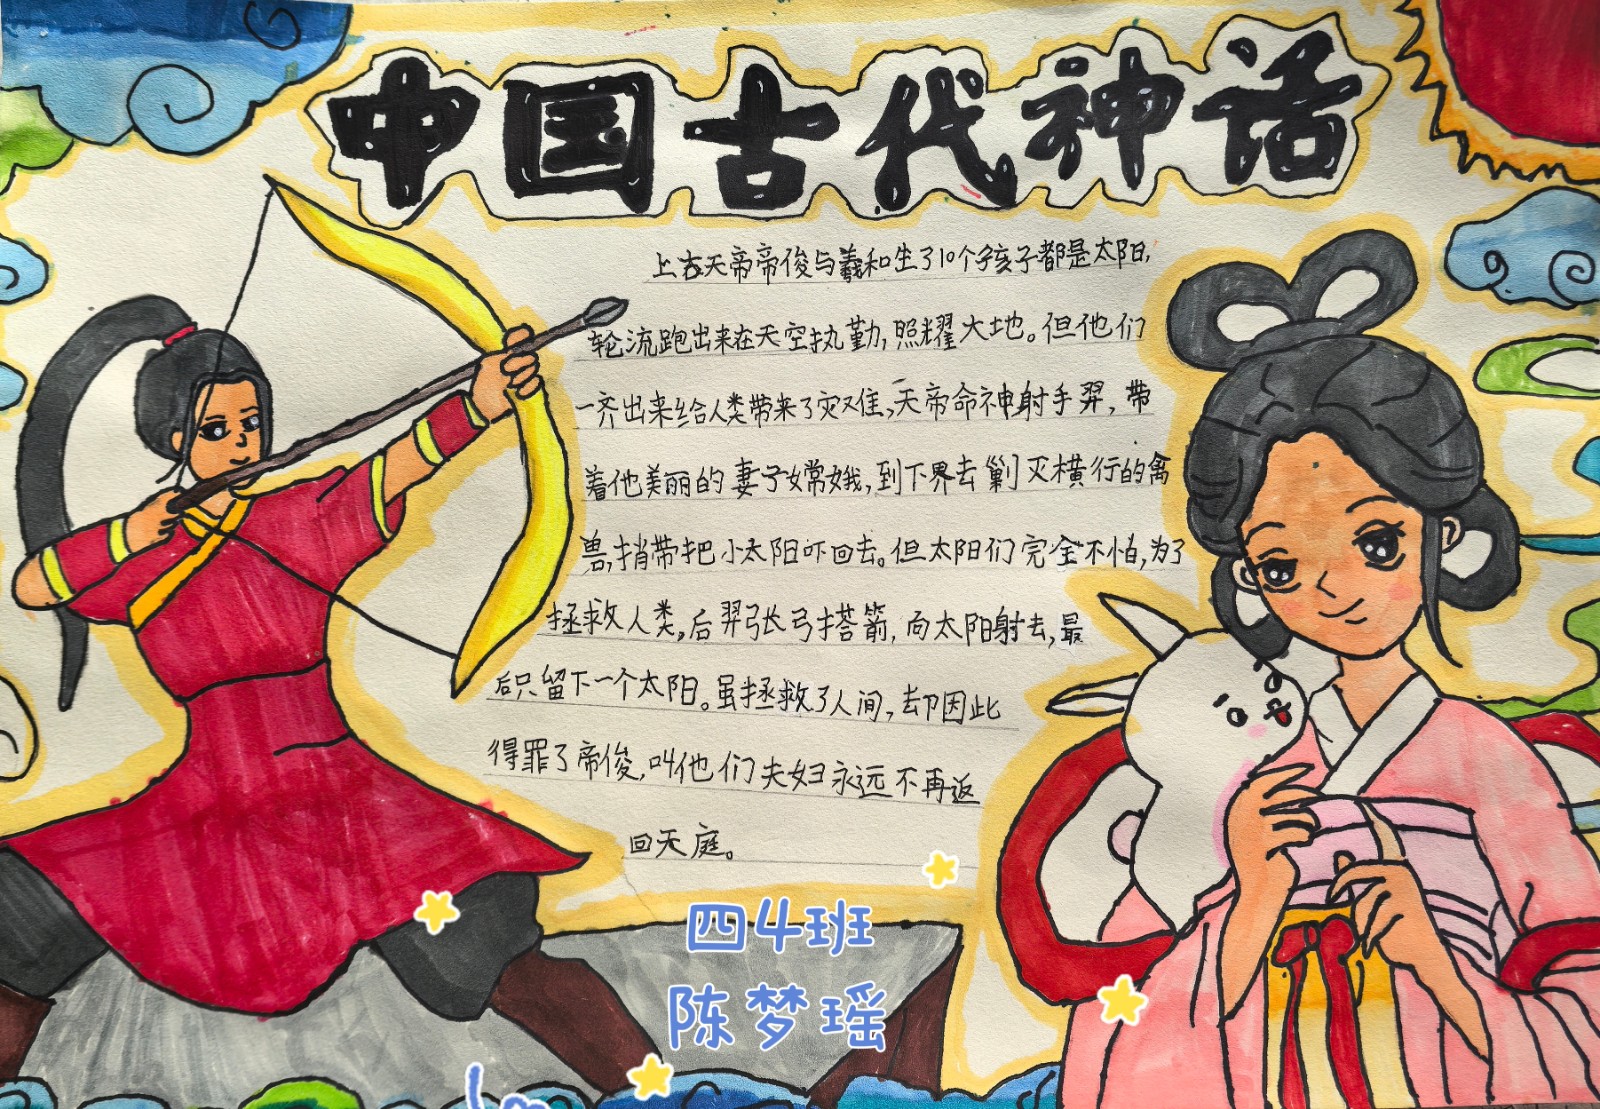 中国古代神话
上古天帝帝俊与羲和生了10个孩子都是太阳,
轮流跑出来在天空执勤,照耀大地。但他们
一齐出来给人类带来了灾难,天帝命神射手羿,带
着他美丽的妻子嫦娥,到下界去剿灭横行的禽
兽,捎带把小太阳吓回去。但太阳们完全不怕,为了
拯救人类,后羿张弓搭箭,向太阳射去,最
后只留下一个太阳。虽拯救了人间,却因此
得罪了帝俊,叫他们夫妇永远不再返
回天庭。
四4班
陈梦瑶